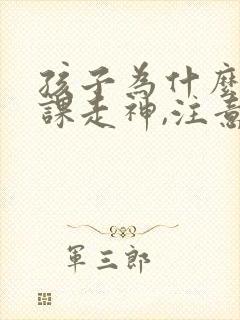 孩子為什麼
課走神,注意
軍三郎